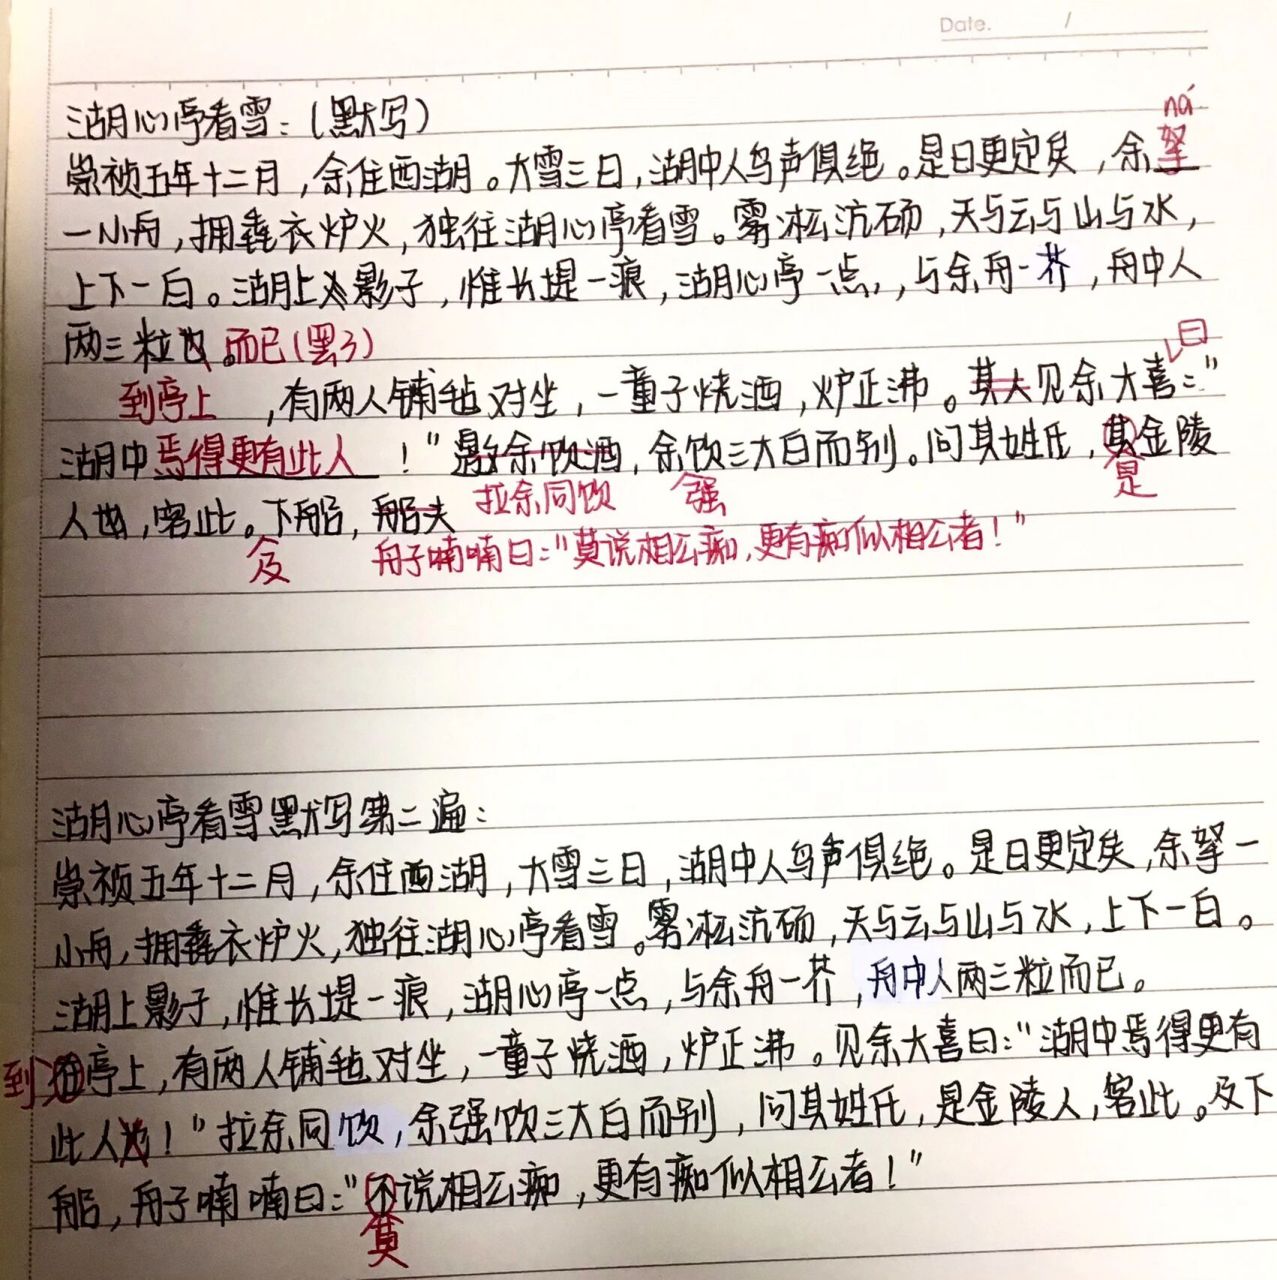 Date. /
湖心亭看雪：（默写）
ná
崇祯五年十二月，余住西湖。大雪三日，湖中人鸟声俱绝。是日更定矣，余拏
一小舟，拥毳衣炉火，独往湖心亭看雪。雾凇沆砀，天与云与山与水，
上下一白。湖上影子，惟长堤一痕，湖心亭一点，，与余舟一芥，舟中人
两三粒也。而已（罢了）
曰
到亭上，有两人铺毡对坐，一童子烧酒，炉正沸。其大见余大喜：“
湖中焉得更有此人！”邀余饮酒，余饮三大白而别。问其姓氏，其金陵
拉余同饮 强 是
人也，客此。下船，船夫
及 舟子喃喃曰：“莫说相公痴，更有痴似相公者！”
湖心亭看雪默写第二遍：
崇祯五年十二月，余住西湖，大雪三日，湖中人鸟声俱绝。是日更定矣，余拏一
小舟，拥毳衣炉火，独往湖心亭看雪。雾凇沆砀，天与云与山与水，上下一白。
湖上影子，惟长堤一痕，湖心亭一点，与余舟一芥，舟中人两三粒而已。
到亭上，有两人铺毡对坐，一童子烧酒，炉正沸。见余大喜曰：“湖中焉得更有
此人！”拉余同饮，余强饮三大白而别，问其姓氏，是金陵人，客此。及下
船，舟子喃喃曰：“不说相公痴，更有痴似相公者！”
莫